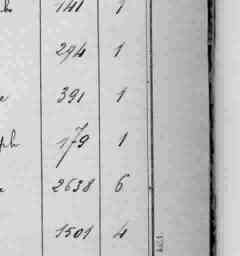 141 1
294 1
391 1
179 1
2638 6
1501 4